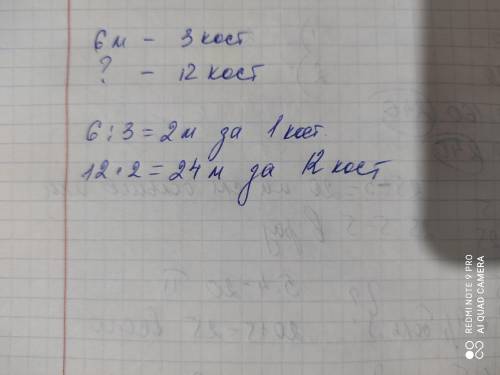 6м - 3 кост
? - 12 кост
6:3=2м за 1 кост.
12·2=24м за 12 кост
REDMI NOTE 9 PRO
AI QUAD CAMERA